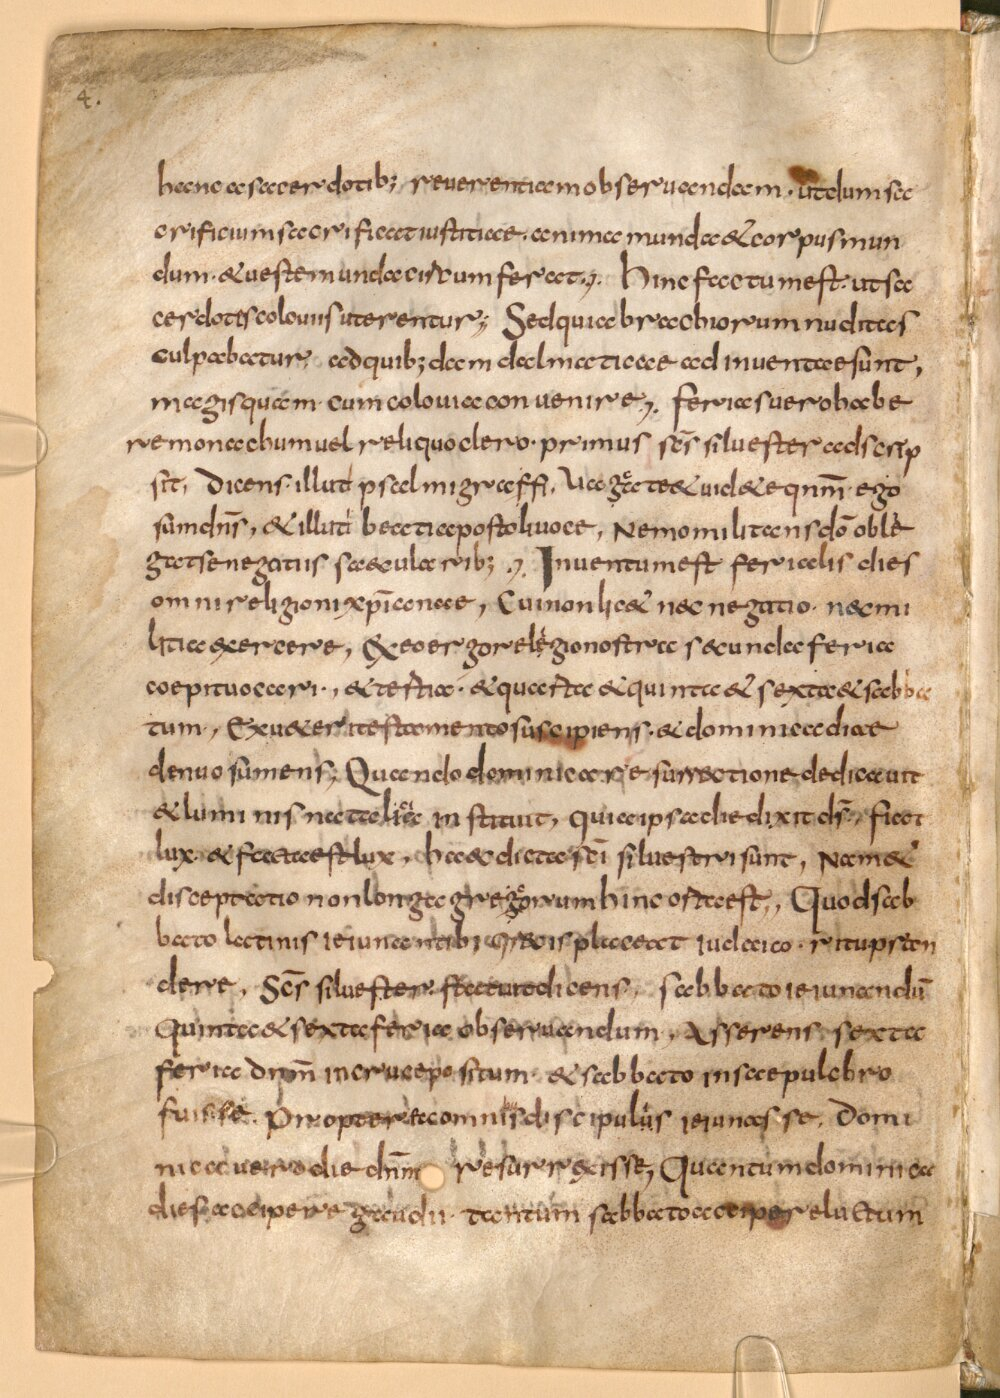 4.
hanc a sacerdotib; reuerentiam obseruandam. ut dum sa
crificium sacrificat iustitiae. anima munda & corpus mun
dum. & ueste munda circumferat.,. Hinc factum est. ut sa
cerdotes colouiis uterentur; Sed quia brachiorum nuditas
culpabatur, ad quib; dam dalmaticae ad inuentae sunt,
magis quam cum colouia conuenire,. ferias uero habe
re monachum uel reliquo clero. primus scs siluester adscrip
sit, Dicens illud psalmigraffi, Uagate & uidete qnm ego
sum dns, & illud beati apostoli uoce, Nemo militans do oble
gat se negatiis saecularib; ,. Inuentum est ferialis dies
omni religioni xpianae, Cui non lic& nec negatio. nec mi
litia exercere, Ex eo ergo relegio nostra secunda feria
coepit uocari., & tertia. & quarta & quinta & sexta & sabba
tum, Ex ueteri testamento suscipiens. & dominica diae
denuo sumens; Quando dominica resurrectione dedicauit
& luminis natalicia instituit, quia ipsa die dixit ds, fiat
lux & facta est lux, haec dicta sci siluestri sunt, Nam &
disceptatio non longa gregorum hinc orta est,, Quod sab
bato latinis ieiunantib; displaceat iudaico ritu pran
dere, Scs siluester dicens, sabbato ieiunandu
Quinta & sexta feria obseruandum, Asserens sexta
feria dnm in cruce positum & sabbato in saepulchro
fuisse. Propterea omnis discipulus ieiunasse, Domi
nica uero die dnm resurrexisse, Quantum dominica
dies accipere gaudii tantum sabbato acciper& luctum